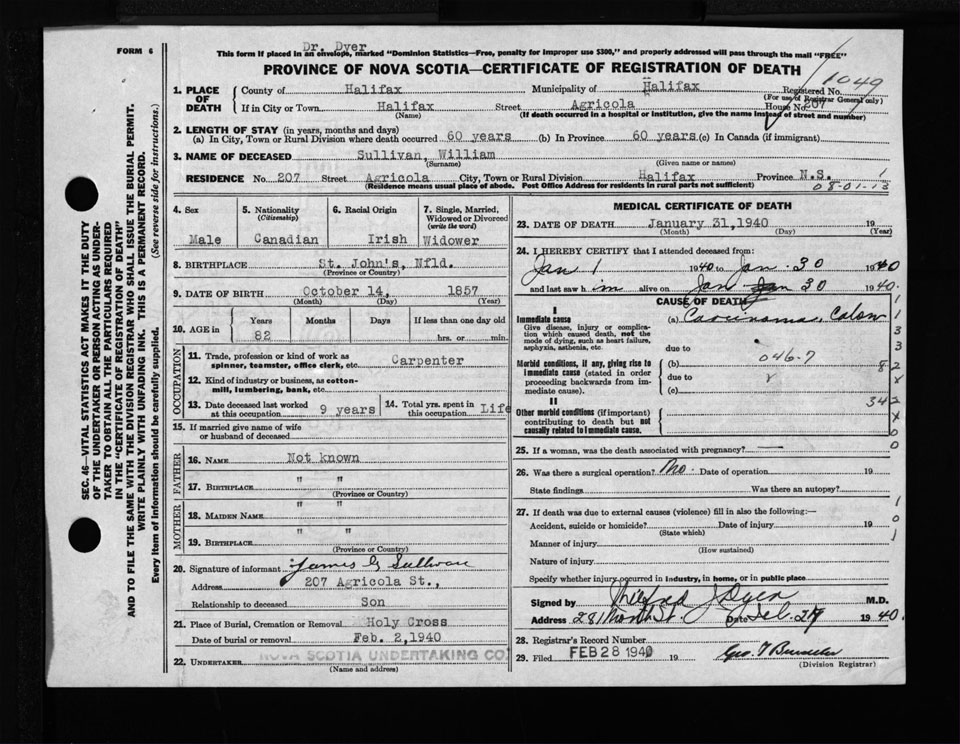 FORM 6
Dr. Dyer
This form if placed in an envelope, marked "Dominion Statistics—Free, penalty for improper use $300," and properly addressed will pass through the mail "FREE"
PROVINCE OF NOVA SCOTIA—CERTIFICATE OF REGISTRATION OF DEATH
1049
1. PLACE OF DEATH
County of Halifax Municipality of Halifax Registered No.
(For use of Registrar General only)
If in City or Town Halifax Street Agricola House No. 207
(Name) (If death occurred in a hospital or institution, give the name instead of street and number)
2. LENGTH OF STAY (in years, months and days)
(a) In City, Town or Rural Division where death occurred 60 years (b) In Province 60 years (c) In Canada (if immigrant)
3. NAME OF DECEASED Sullivan, William
(Surname) (Given name or names)
RESIDENCE No. 207 Street Agricola City, Town or Rural Division Halifax Province N.S.
(Residence means usual place of abode. Post Office Address for residents in rural parts not sufficient)
08-01-13
4. Sex
Male
5. Nationality
(Citizenship)
Canadian
6. Racial Origin
Irish
7. Single, Married, Widowed or Divorced
(write the word)
Widower
8. BIRTHPLACE St. John's, Nfld.
(Province or Country)
9. DATE OF BIRTH October 14, 1857
(Month) (Day) (Year)
10. AGE in
Years Months Days If less than one day old
82 hrs. or min.
OCCUPATION
11. Trade, profession or kind of work as
spinner, teamster, office clerk, etc. Carpenter
12. Kind of industry or business, as cotton-
mill, lumbering, bank, etc.
13. Date deceased last worked
at this occupation 9 years
14. Total yrs. spent in
this occupation Life
15. If married give name of wife
or husband of deceased
FATHER
16. NAME Not known
17. BIRTHPLACE " "
(Province or Country)
MOTHER
18. MAIDEN NAME " "
19. BIRTHPLACE " "
(Province or Country)
20. Signature of informant James G Sullivan
Address 207 Agricola St.,
Relationship to deceased Son
21. Place of Burial, Cremation or Removal Holy Cross
Date of burial or removal Feb. 2,1940
22. UNDERTAKER NOVA SCOTIA UNDERTAKING CO.
(Name and address)
MEDICAL CERTIFICATE OF DEATH
23. DATE OF DEATH January 31,1940 19
(Month) (Day) (Year)
24. I HEREBY CERTIFY that I attended deceased from:
Jan 1 1940 to Jan. 30 1940
and last saw him alive on Jan 30 1940.
CAUSE OF DEATH
I
Immediate cause (a) Carcinoma, Colon
Give disease, injury or complica-
tion which caused death, not the
mode of dying, such as heart failure,
asphyxia, asthenia, etc.
due to
046-7
Morbid conditions, if any, giving rise to (b)
immediate cause (stated in order
proceeding backwards from im-
mediate cause).
due to
(c)
II
Other morbid conditions (if important)
contributing to death but not
causally related to immediate cause.
25. If a woman, was the death associated with pregnancy?
26. Was there a surgical operation? No. Date of operation 19
State findings Was there an autopsy?
27. If death was due to external causes (violence) fill in also the following:—
Accident, suicide or homicide? Date of injury 19
(State which)
Manner of injury
(How sustained)
Nature of injury
Specify whether injury occurred in industry, in home, or in public place
Signed by J Dyer M.D.
Address 281 North St. Date Feb. 27 1940
28. Registrar's Record Number
29. Filed FEB 28 1940 19
(Division Registrar)
SEC. 46—VITAL STATISTICS ACT MAKES IT THE DUTY
OF THE UNDERTAKER OR PERSON ACTING AS UNDER-
TAKER TO OBTAIN ALL THE PARTICULARS REQUIRED
IN THE "CERTIFICATE OF REGISTRATION OF DEATH"
AND TO FILE THE SAME WITH THE DIVISION REGISTRAR WHO SHALL ISSUE THE BURIAL PERMIT.
WRITE PLAINLY WITH UNFADING INK. THIS IS A PERMANENT RECORD.
Every item of information should be carefully supplied. (See reverse side for instructions.)